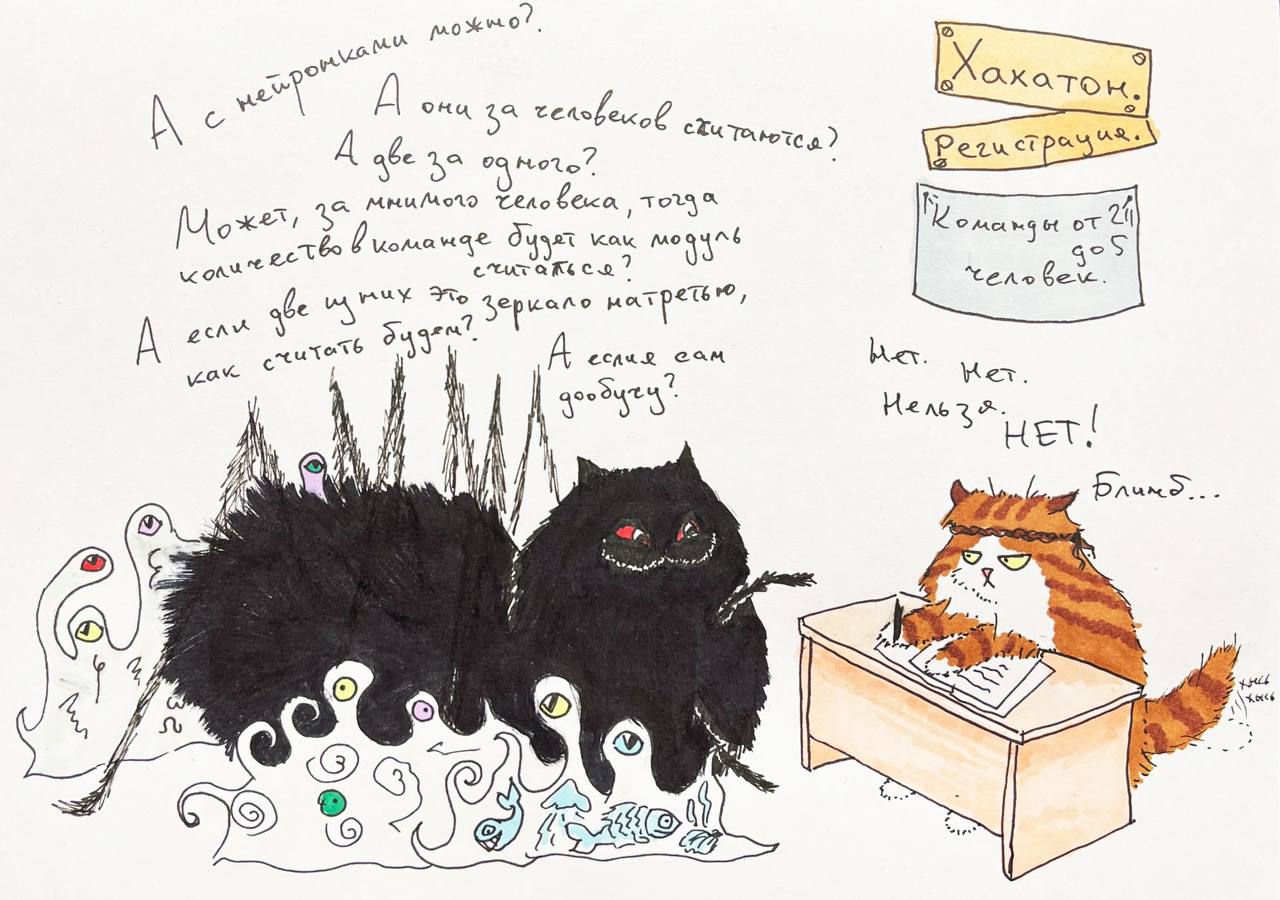 А с нейронками можно?
А они за человеков считаются?
А две за одного?
Может, за мнимого человека, тогда
количество в команде будет как модуль
считаться?
А если две из них это зеркало натретью,
как считать будем?
А если я сам
дообучу?
Хакатон.
Регистрация.
Команды от 2
до 5
человек.
Нет.
Нет.
Нельзя.
НЕТ!
Блинб...
хысь
хысь